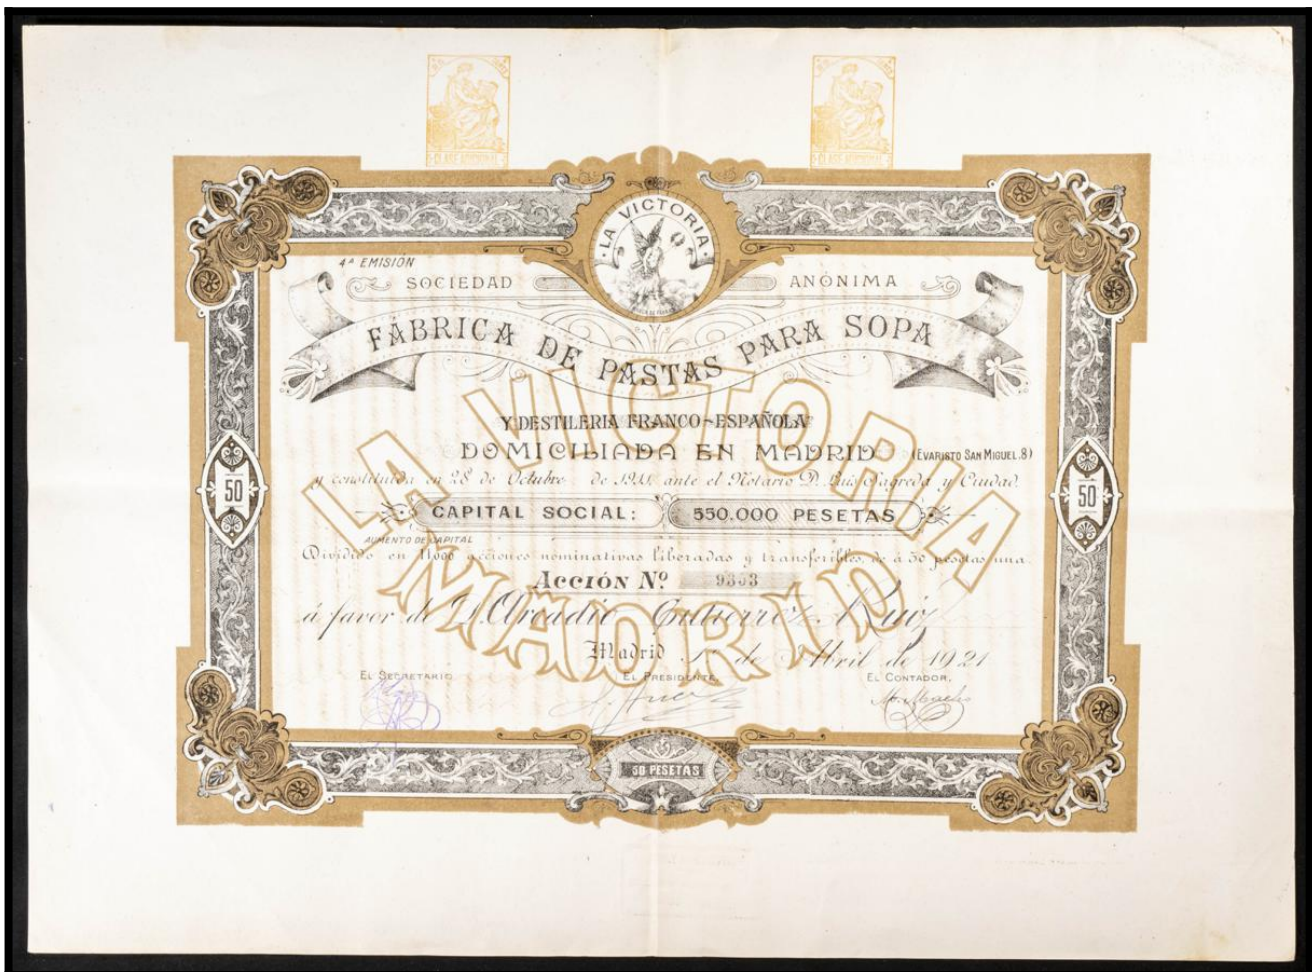 CLASE ADICIONAL CLASE ADICIONAL
LA VICTORIA
4ª EMISIÓN
SOCIEDAD ANÓNIMA
FÁBRICA DE PASTAS PARA SOPA
Y DESTILERIA FRANCO-ESPAÑOLA
DOMICILIADA EN MADRID (EVARISTO SAN MIGUEL.8)
y constituida en 28 de Octubre de 1911, ante el Notario D. Luis Sagreda y Ciudad.
CAPITAL SOCIAL: 550.000 PESETAS
AUMENTO DE CAPITAL
Dividido en 11.000 acciones nominativas liberadas y transferibles, de á 50 pesetas una.
ACCIÓN Nº
á favor de D. Arcadio Gutierrez Ruiz
Madrid 1º de Abril de 1921
EL SECRETARIO EL PRESIDENTE, EL CONTADOR,
50 50
50 PESETAS
LA VICTORIA
MADRID